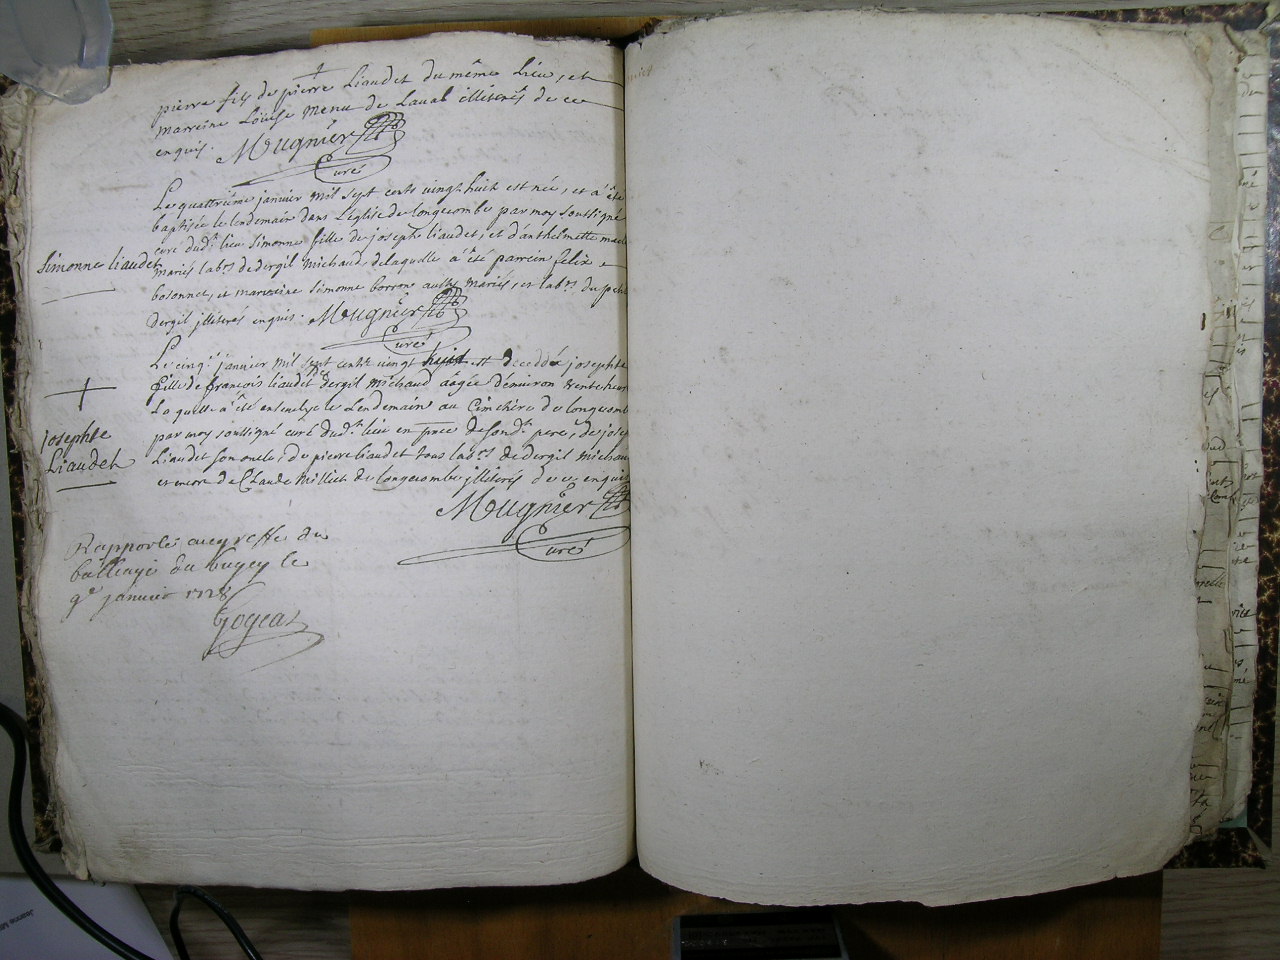 pierre fils de pierre Liaudet du même Lieu, et
marreine Louise Menu de Laval illiterés de ce
enquis. Mugnier
Curé
Le quattriéme janvier mil sept cents vingt huit est née, et a été
baptisée le lendemain dans L'église de longecombe par moy soussigné
curé dud.t lieu simonne fille de joseph liaudet, et d'anthelmette
simonne liaudet
mariés lab.rs de dergil michaud de laquelle a été parrein felix
bosonnet, et marreine simonne borron aussy mariés, et lab.rs du petit
dergil jlliterés enquis. Mugnier
Curé
Le cinq.e janvier mil sept cents vingt huit est decedée josephte
fille de francois liaudet dergil michaud aâgée d'environ
La quelle a été ensevelye le Lendemain au Cimetiere de longecombe
josephte
Liaudet
par moy soussigné curé dud.t lieu en pnce de sond.t pere, de joseph
Liaudet son oncle, de pierre liaudet tous lab.rs de dergil michaud
et encore de Claude Milliet de longecombe jlliterés de ce enquis
Mugnier
Curé
Rapporté au greffe du
balliage du bugey le
9e janvier 1728